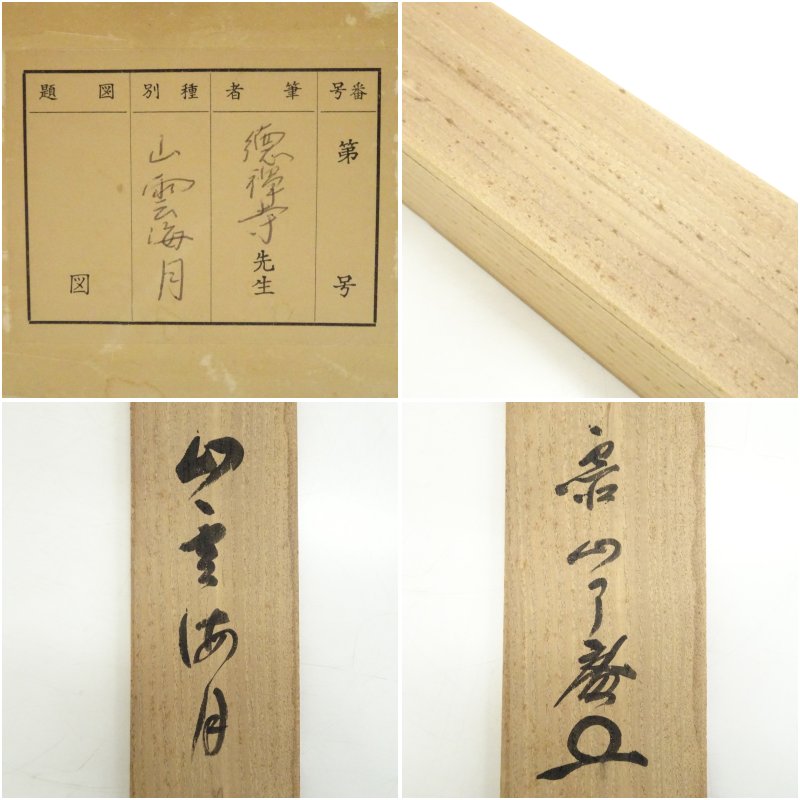 番号
第 号
筆者
徳禅寺先生
種別
山雲海月
図題
図
山雲海月
紫山了庵